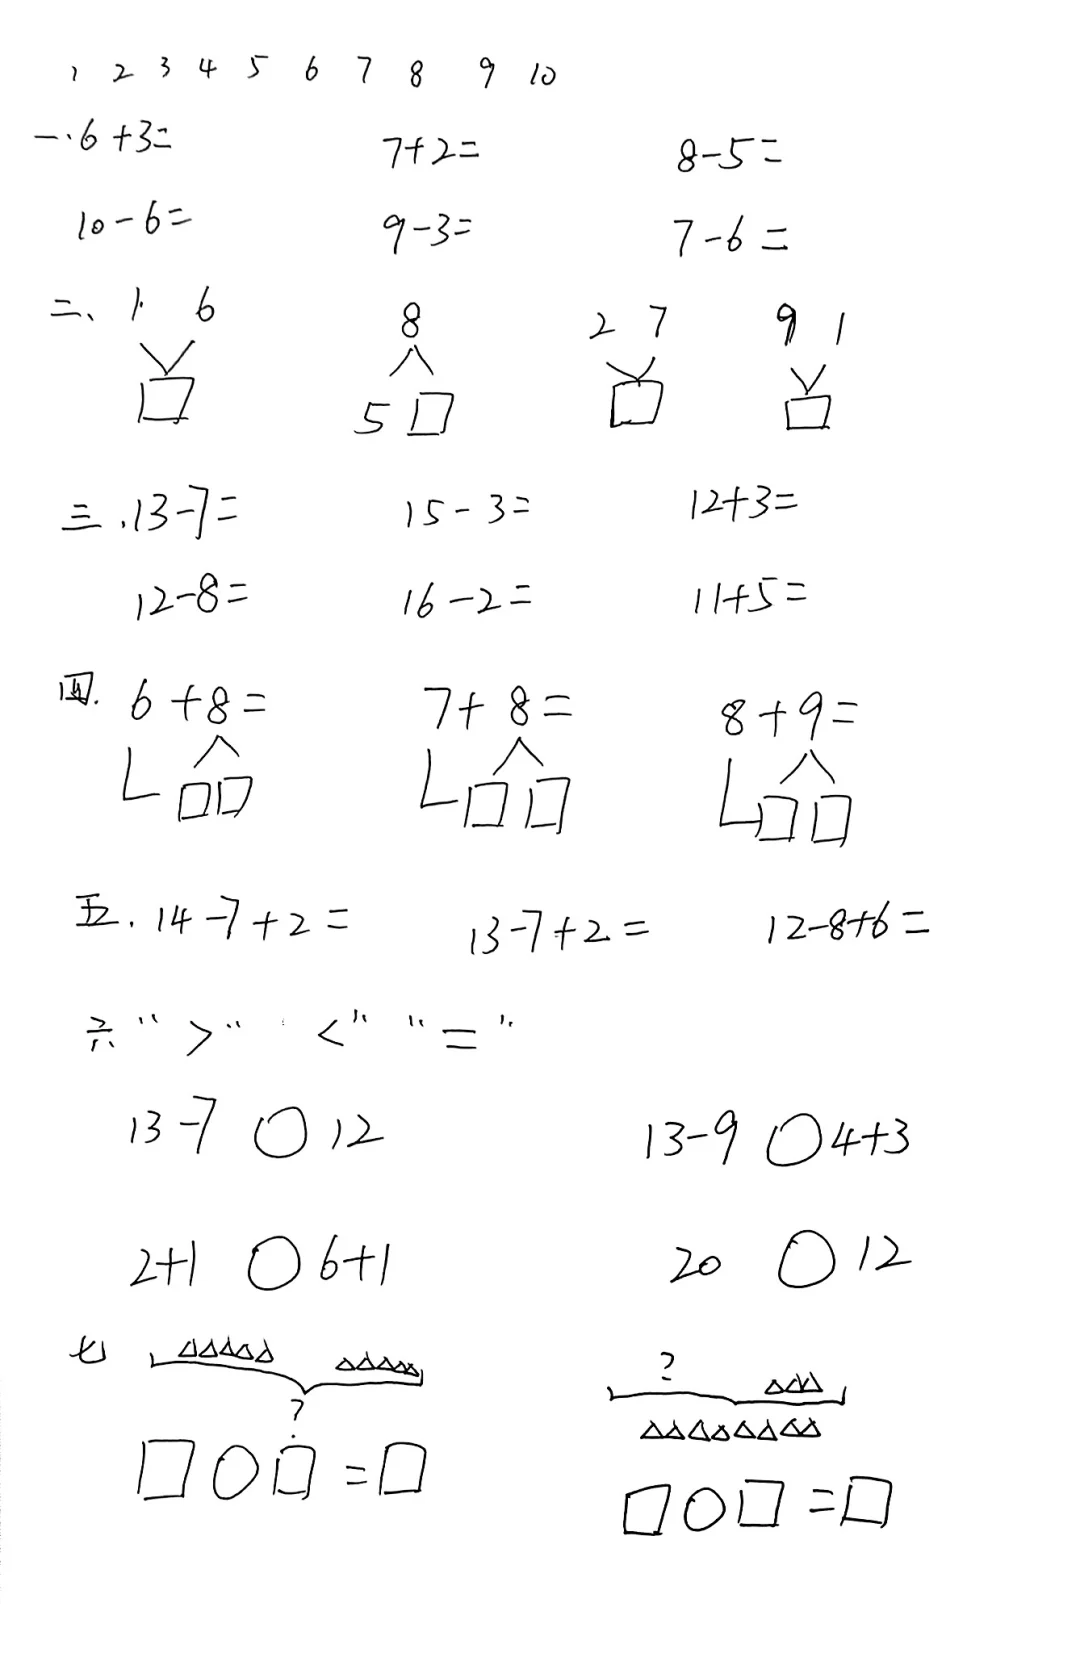 1 2 3 4 5 6 7 8 9 10
一.6+3= 7+2= 8-5=
10-6= 9-3= 7-6=
二、1 6 8 2 7 9 1
5
三.13-7= 15-3= 12+3=
12-8= 16-2= 11+5=
四.6+8= 7+8= 8+9=
五.14-7+2= 13-7+2= 12-8+6=
六 “>” “<” “=”
13-7 ○ 12 13-9 ○ 4+3
2+1 ○ 6+1 20 ○ 12
七
? ?
□○□=□ □○□=□